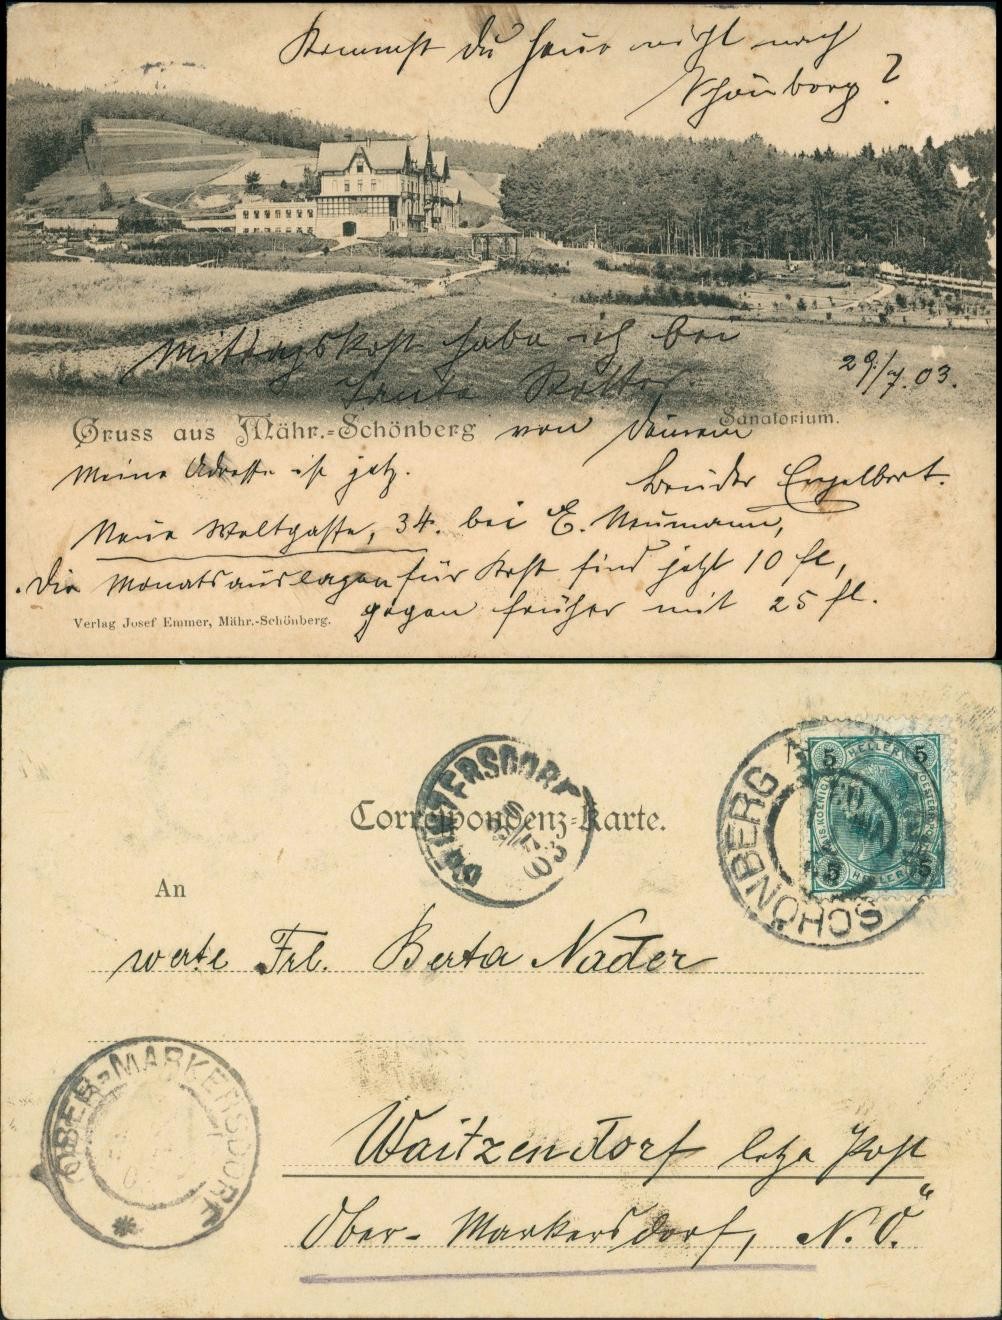 Kommst du heuer nicht nach
Schönberg?
Mittagskost habe ich bei
Tante Rotter.
29./7.03.
Gruss aus Mähr.-Schönberg
Sanatorium.
von deinem
Bruder Engelbert.
Meine Adresse ist jetz.
Neue Weltgasse, 34. bei E. Neumann,
Die Monatsauslagen für Kost sind jetzt 10 fl,
gegen früher mit 25 fl.
Verlag Josef Emmer, Mähr.-Schönberg.
5 HELLER 5
5 HELLER 5
SCHÖNBERG
03
Correspondenz-Karte.
An
werte Frl. Berta Nader
OBER-MARKERSDORF
Waitzendorf letzte Post
Ober-Markersdorf, N.Ö.